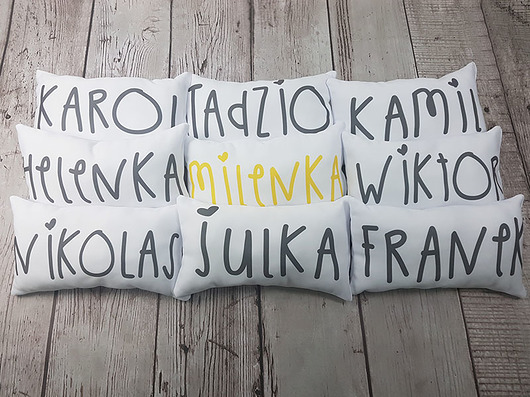 KAROL
TadziO
KAMIL
HeleNKA
MileNKA
WiKtOR
NiKOLAS
JULKA
FRANeK